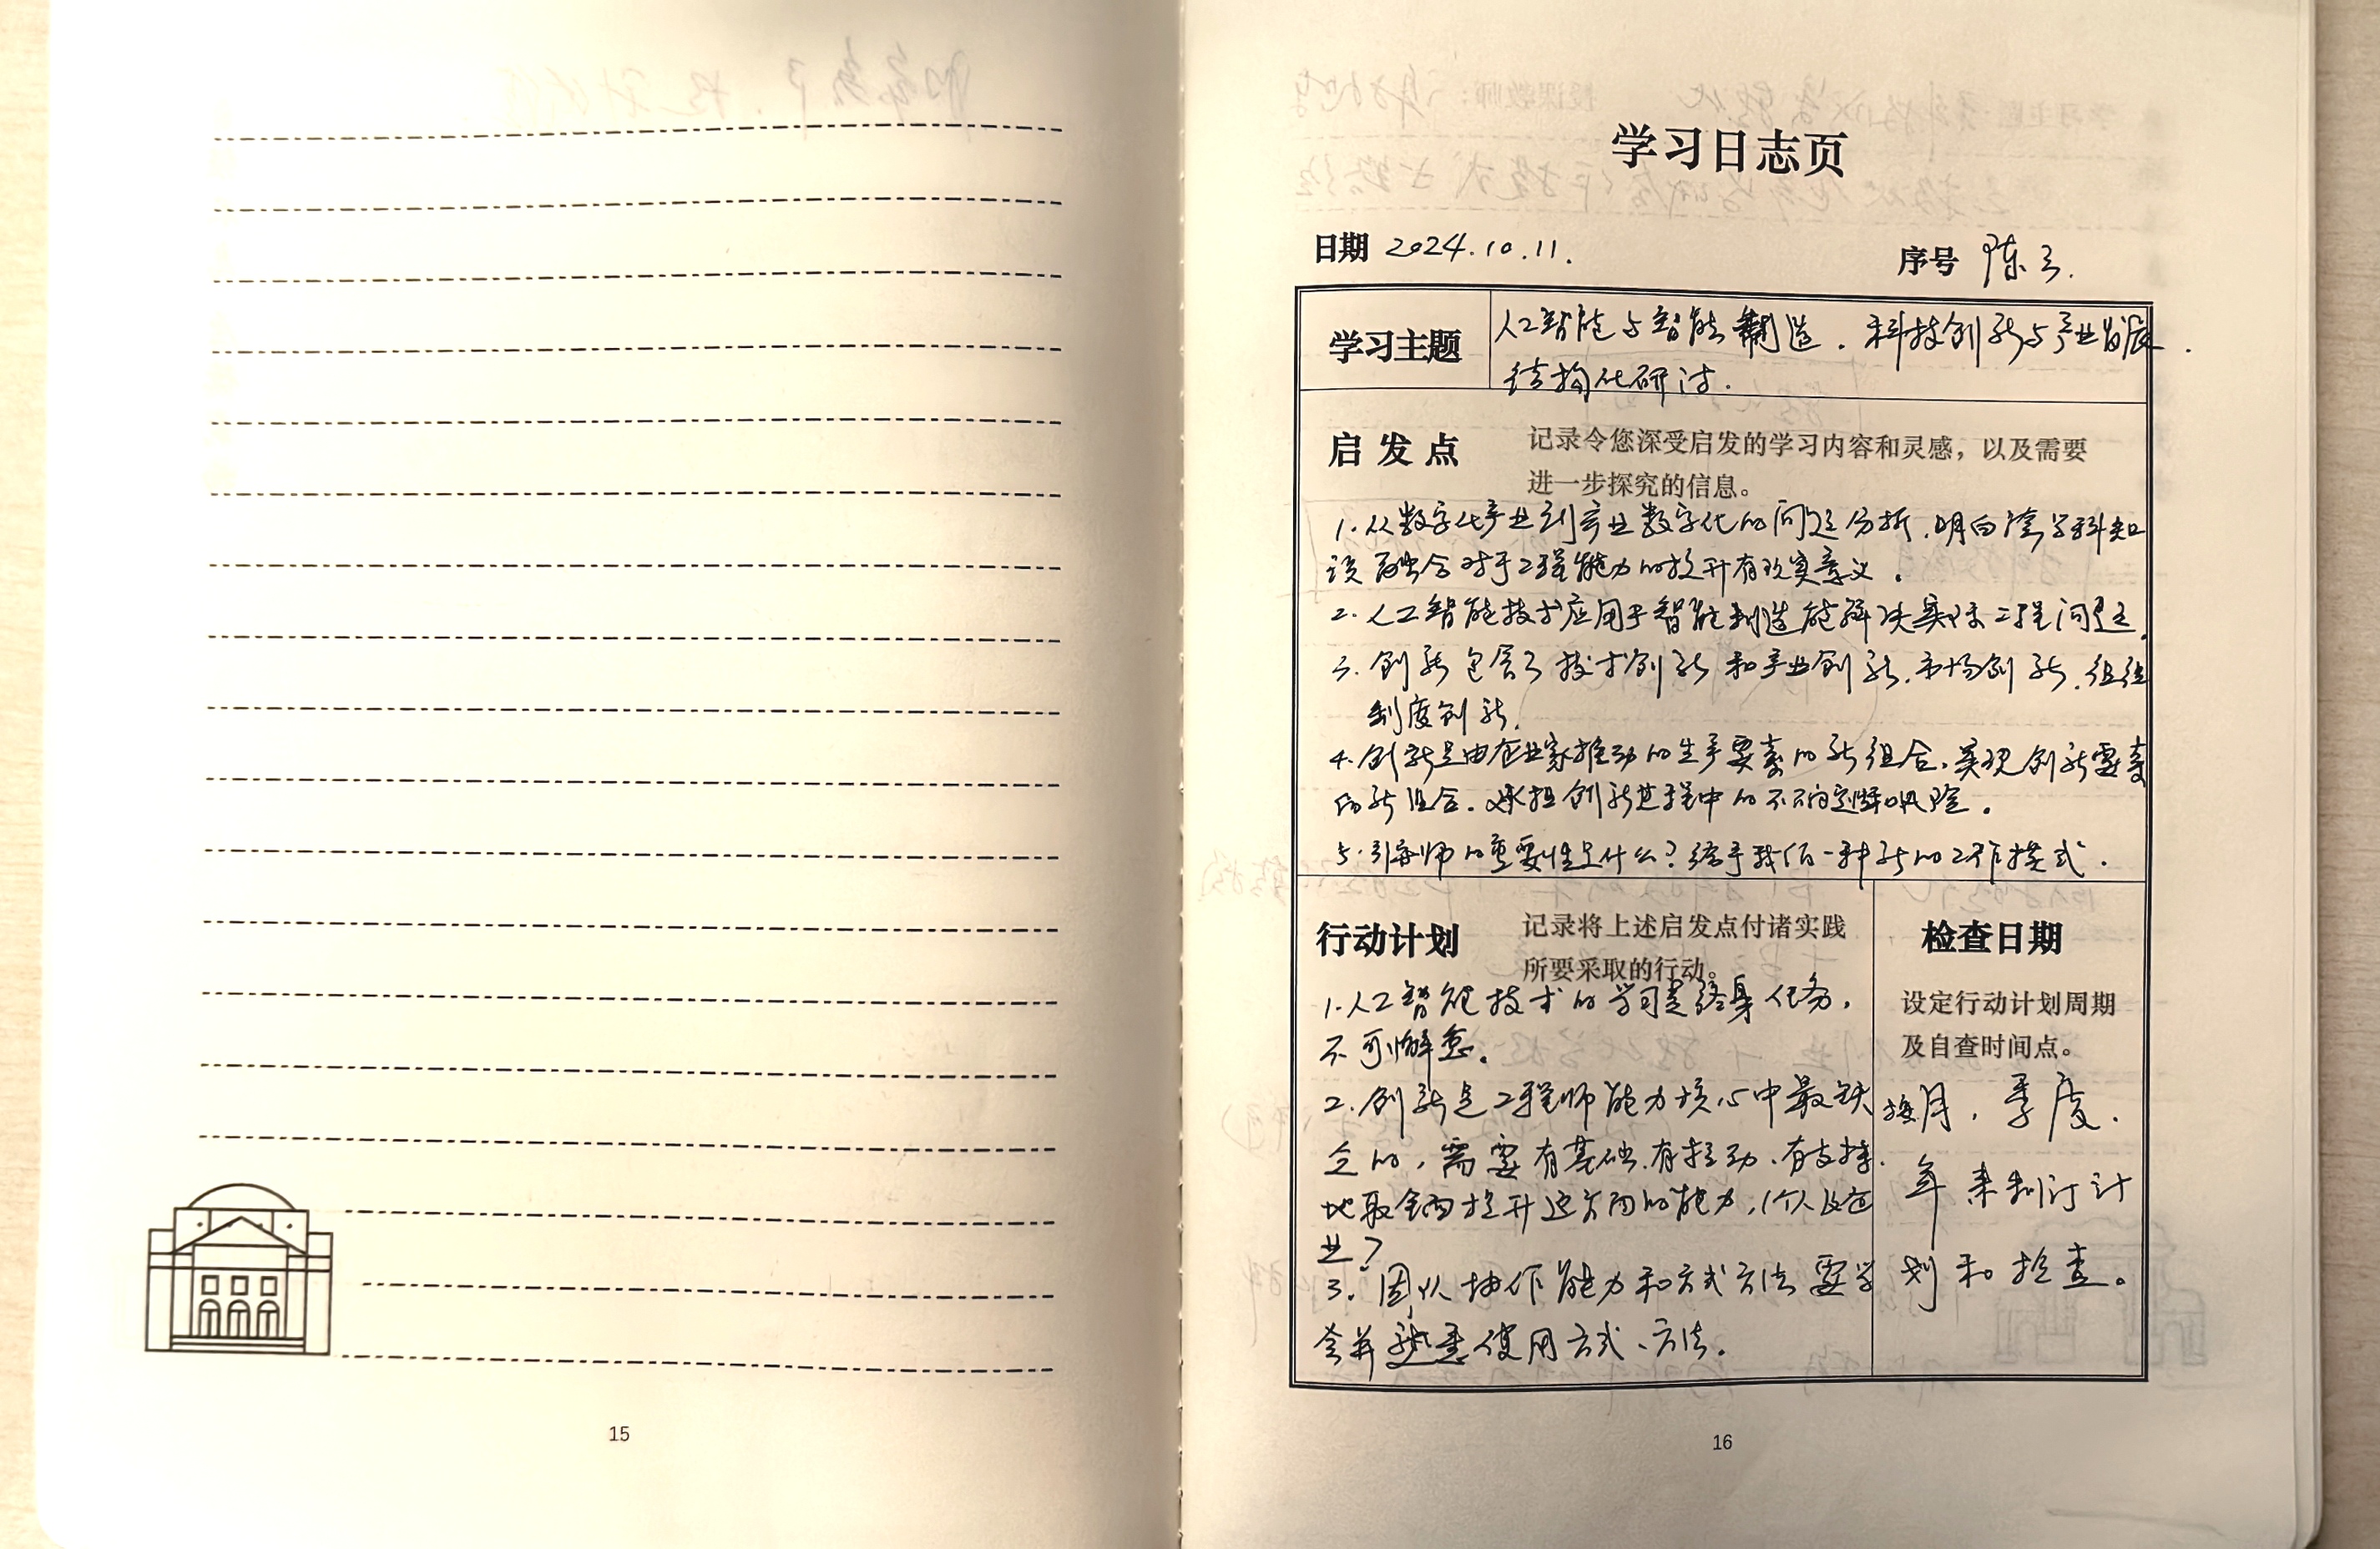 15
学习日志页
日期 2024.10.11.
序号 陈云.
学习主题
人工智能与智能制造. 科技创新与产业发展.
结构化研讨.
启发点
记录令您深受启发的学习内容和灵感，以及需要
进一步探究的信息。
1.从数字化产业到产业数字化的问题分析,明白跨学科知
识融合对于工程能力的提升有现实意义.
2.人工智能技术应用于智能制造能解决实际工程问题.
3.创新包含了技术创新和产业创新.市场创新.组织
制度创新.
4.创新是由企业家推动的生产要素的新组合.实现创新要素
的新组合.承担创新过程中的不确定性和风险.
5.引导师的重要性是什么?给予我们一种新的工作模式.
行动计划
记录将上述启发点付诸实践
所要采取的行动。
1.人工智能技术的学习是终身任务,
不可懈怠.
2.创新是工程师能力核心中最缺
乏的,需要有基础.有拉动、有支撑.
地取全面提升这方面的能力,个人及企
业?
3.团队协作能力和方式方法要学
会并熟悉使用方式、方法.
检查日期
设定行动计划周期
及自查时间点。
按月,季度.
年来制订计
划和检查。
16